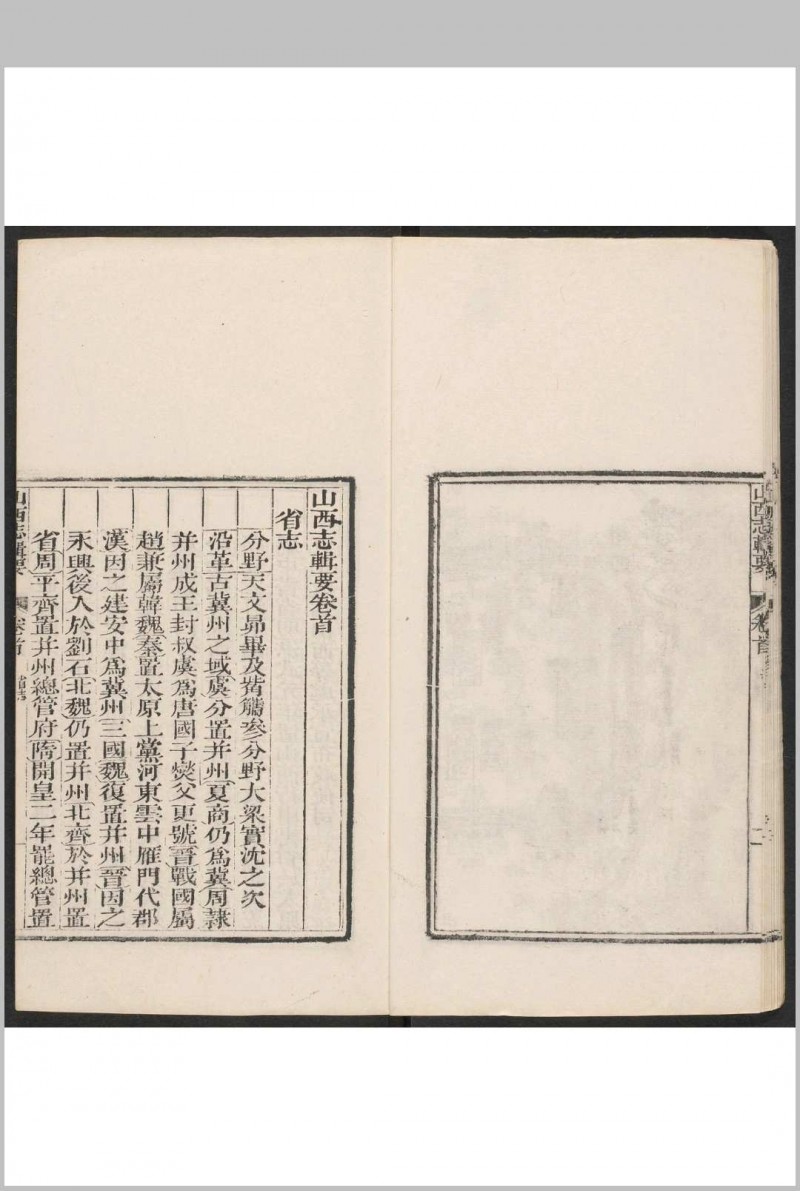 山西志輯要
卷首
二
山西志輯要卷首
省志
分野天文昴畢及觜觿參分野大梁實沈之次
沿革古冀州之域虞分置并州夏商仍爲冀周隸
并州成王封叔虞爲唐國子燮父更號晉戰國屬
趙兼屬韓魏秦置太原上黨河東雲中雁門代郡
漢因之建安中爲冀州三國魏復置并州晉因之
永興後入於劉石北魏仍置并州北齊於并州置
省周平齊置并州總管府隋開皇二年罷總管置
山西志輯要
卷首
省志